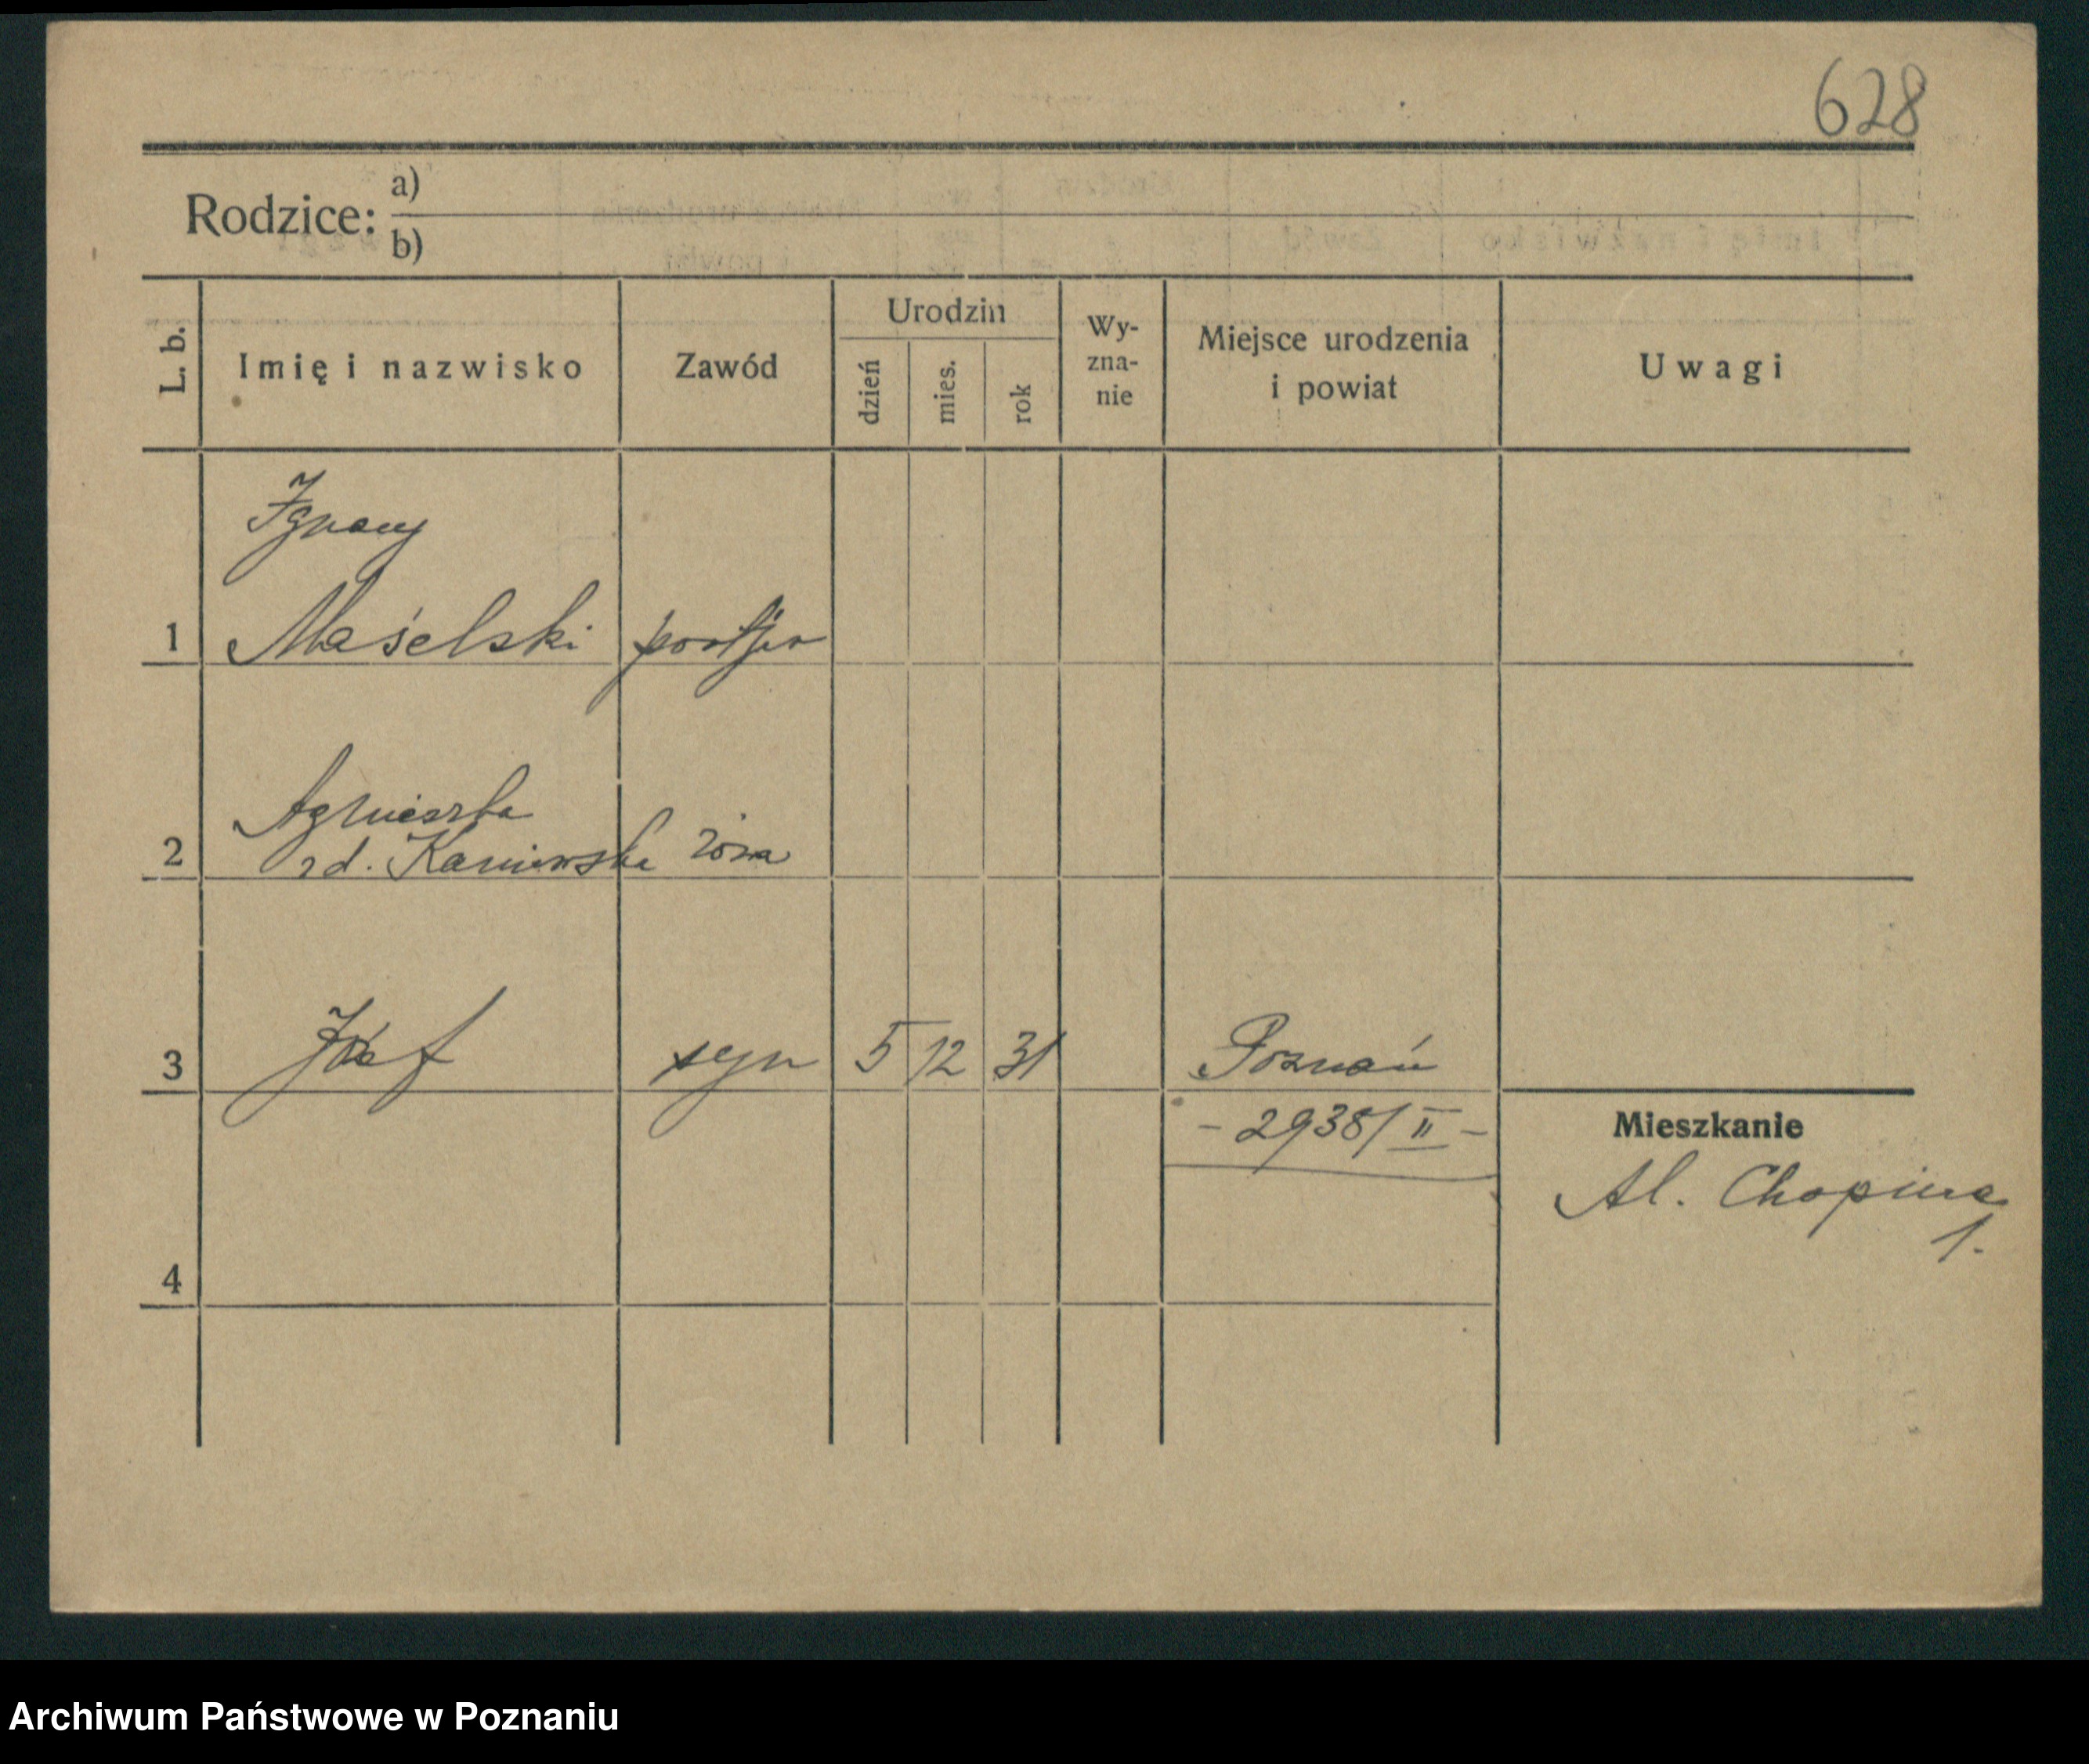 628
Rodzice: a)
b)
L. b. Imię i nazwisko Zawód Urodzin dzień mies. rok Wy-zna-nie Miejsce urodzenia i powiat Uwagi
Ignacy
1 Maśelski portjer
Agnieszka
2 zd. Kaniewska żona
3 Józef syn 5 12 31 Poznań
- 2938/II -
Mieszkanie
Al. Chopina
1.
4
Archiwum Państwowe w Poznaniu